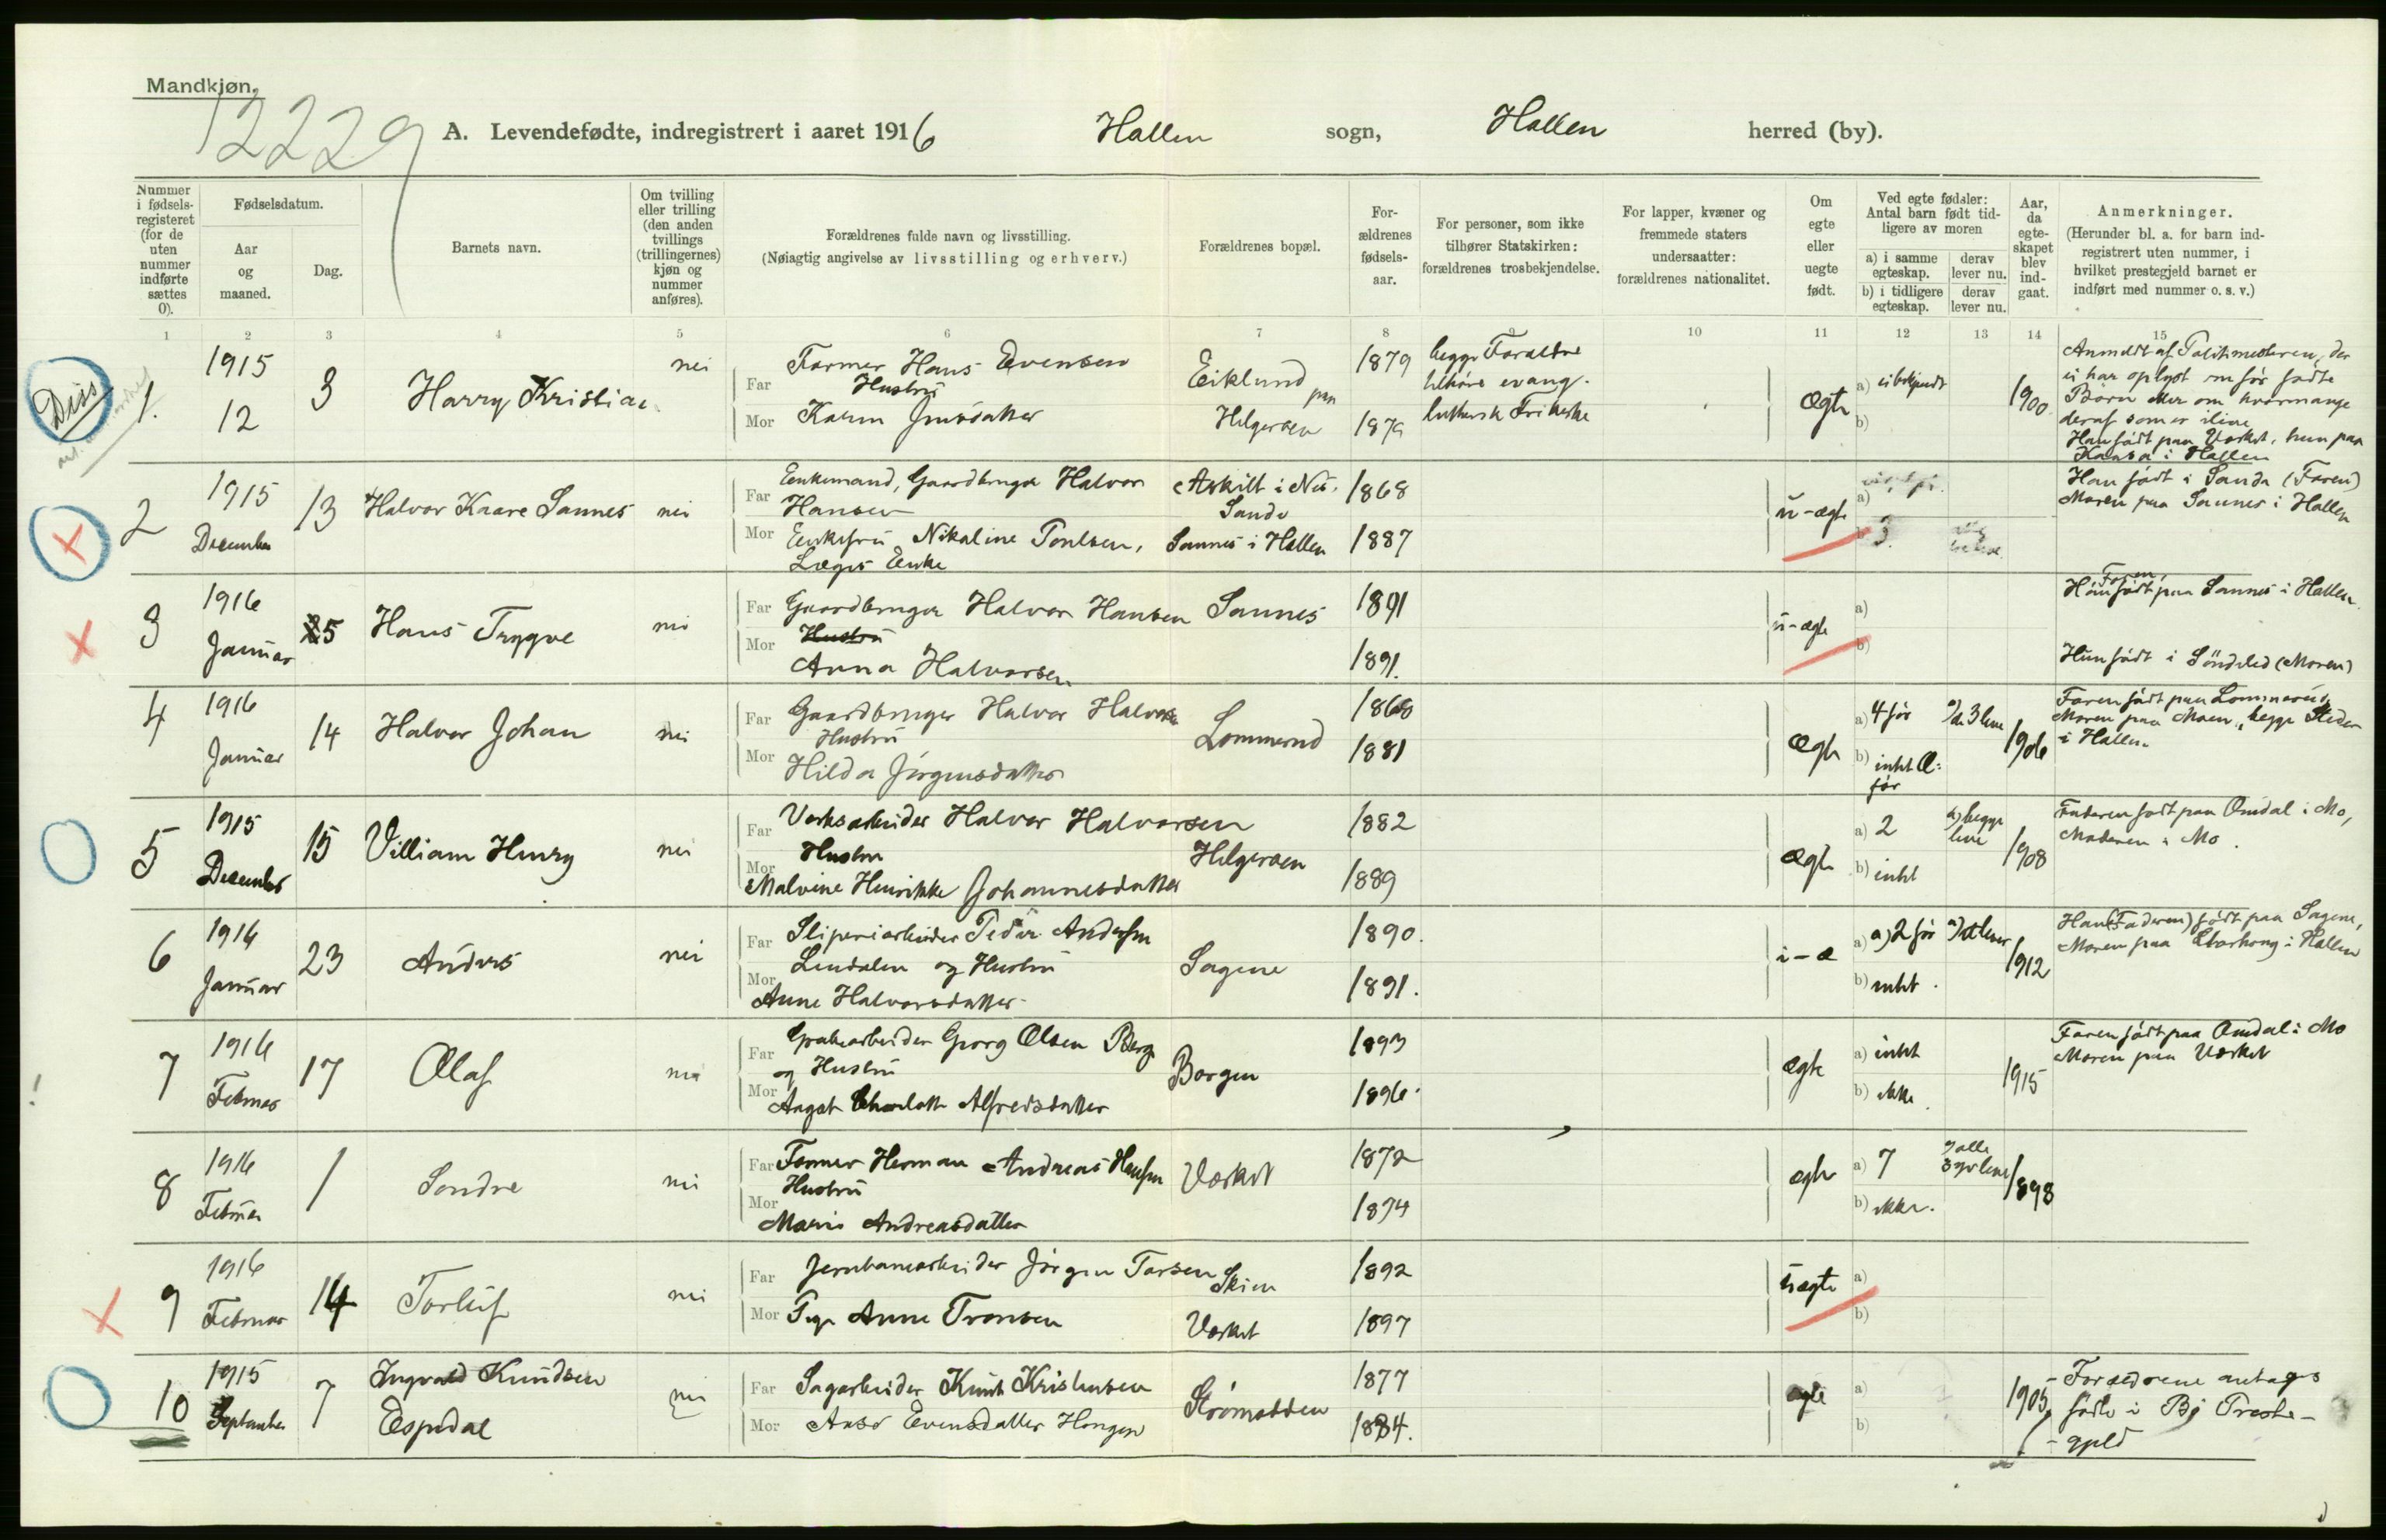 Mandkjøn.
12229
A. Levendefødte, indregistrert i aaret 1916 Hallen sogn, Hallen herred (by).
Nummer i fødsels-registeret (for de uten nummer indførte sættes 0).
Fødselsdatum.
Aar og maaned.
Dag.
Barnets navn.
Om tvilling eller trilling (den anden tvillings (trillingernes) kjøn og nummer anføres).
Forældrenes fulde navn og livsstilling.
(Nøiagtig angivelse av livsstilling og erhverv.)
Forældrenes bopæl.
For-ældrenes fødsels-aar.
For personer, som ikke tilhører Statskirken: forældrenes trosbekjendelse.
For lapper, kvæner og fremmede staters undersaatter: forældrenes nationalitet.
Om egte eller uegte født.
Ved egte fødsler: Antal barn født tid-ligere av moren
a) i samme egteskap. derav lever nu.
b) i tidligere egteskap. derav lever nu.
Aar, da egte-skapet blev ind-gaat.
Anmerkninger.
(Herunder bl. a. for barn ind-registrert uten nummer, i hvilket prestegjeld barnet er indført med nummer o. s. v.)
1 2 3 4 5 6 7 8 9 10 11 12 13 14 15
Diss
1. 1915 12 3 Harry Kristian nei
Far Farmer Hans Evensen
Hustru
Mor Karen Jensdatter
Eiklund paa Helgeroen
1879
1879
begge Forældre
tilhøre evang.
luthersk Frikirke
ægte a) b) 1900
Anmeldt af Politimesteren, der
ei har oplyst om før fødte
Børn eller om hvormange
deraf som er ilive
Han født paa Værket, hun paa
i Hallen
2 1915 December 13 Halvor Kaare Sannes nei
Far Enkemand, Gaardbruger Halvor
Hansen
Mor Enkefru Nikaline Poulsen,
Læges Enke
Askilt i Nes.
Sande
Sannes i Hallen
1868
1887
u-ægte a) b) 3
Han født i Sanda (Faren)
Moren paa Sannes i Hallen
3 1916 Januar 25 Hans Trygve nei
Far Gaardbruger Halvor Hansen
Hustru
Mor Anna Halvorsen
Sannes
1891
1891.
u-ægte a) b)
Faren
Han født paa Sannes i Hallen.
Hun født i Söndeled (Moren)
4 1916 Januar 14 Halvor Johan nei
Far Gaardbruger Halvor Halvorsen
Hustru
Mor Hilda Jörgensdatter
Lommerud
1868
1881
ægte a) 4 før 3 leve b) intet
før
1906
Faren født paa Lommerud
Moren paa Moen, begge Steder
i Hallen
5 1915 December 15 Villiam Henry nei
Far Verksarbeider Halvor Halvorsen
Hustru
Mor Malvine Henrikke Johannesdatter
Helgeroen
1882
1889
ægte a) 2 a) begge leve b) intet 1908
Faderen født paa Omdal i Mo,
Moderen i Mo.
6 1916 Januar 23 Anders nei
Far Sliperiarbeider Peder Andersen
Lindalen og Hustru
Mor Anne Halvorsdatter
Sagene
1890.
1891.
i-æ a) a) 2 før b) intet. 1912
Han (Faderen) født paa Sagene,
Moren paa i Hallen
7 1916 Februar 17 Olaf nei
Far Grubearbeider Georg Olsen Berge
og Hustru
Mor Aagot Charlotte Alfredsdatter
Borgen
1893
1896.
ægte a) intet b) ikke. 1915
Faren født paa Omdal i Mo
Moren paa Værket
8 1916 Februar 1 Sondre nei
Far Farmer Herman Andreas Hansen
Hustru
Mor Marie Andreasdatter
Værket
1872
1874
ægte a) 7 alle leve b) ikke. 1898
9 1916 Februar 14 Torleif nei
Far Jernbanearbeider Jörgen Tarsen
Mor Pige Anne Tronsen
Skien
Værket
1892
1897
uægte a) b)
10 1915 September 7 Ingvald Knudsen
Espedal nei
Far Sagarbeider Knut Kristensen
Mor Evensdatter
Strømodden
1877
1884.
ægte a) b) 1905
- Forældrene antages
fødte i Bø Preste-
- gjeld